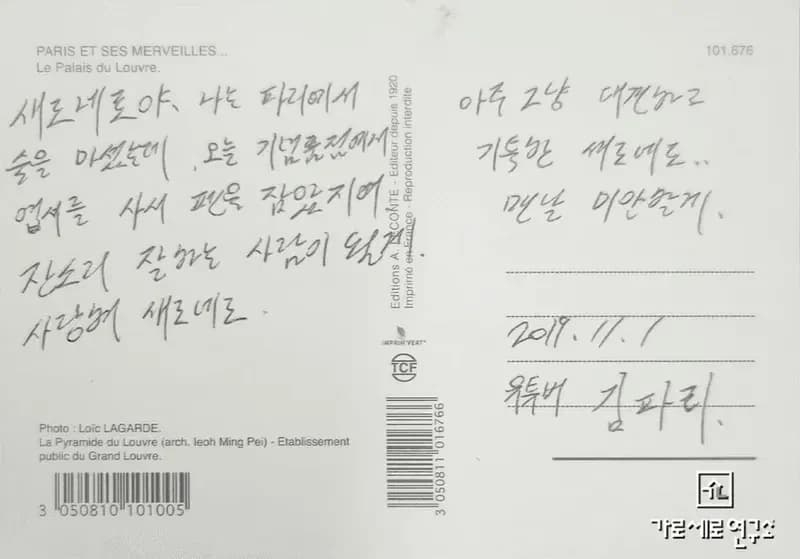 PARIS ET SES MERVEILLES...
Le Palais du Louvre.
새로네로야, 나는 파리에서
술을 마셨는데, 오늘 기념품점에서
엽서를 사서 펜을 잡았지여
잔소리 잘하는 사람이 될게.
사랑해 새로네로.
Photo : Loïc LAGARDE.
La Pyramide du Louvre (arch. Ieoh Ming Pei) - Etablissement
public du Grand Louvre.
3 050810 101005
Editions A. LECONTE - Editeur depuis 1920
Imprimé en France - Reproduction interdite
IMPRIM'VERT
TCF
3 050811 016766
101.676
아주 그냥 대견하고
기특한 새로네로..
맨날 미안할게.
2019.11.1
유투버 김파리.
가로세로연구소